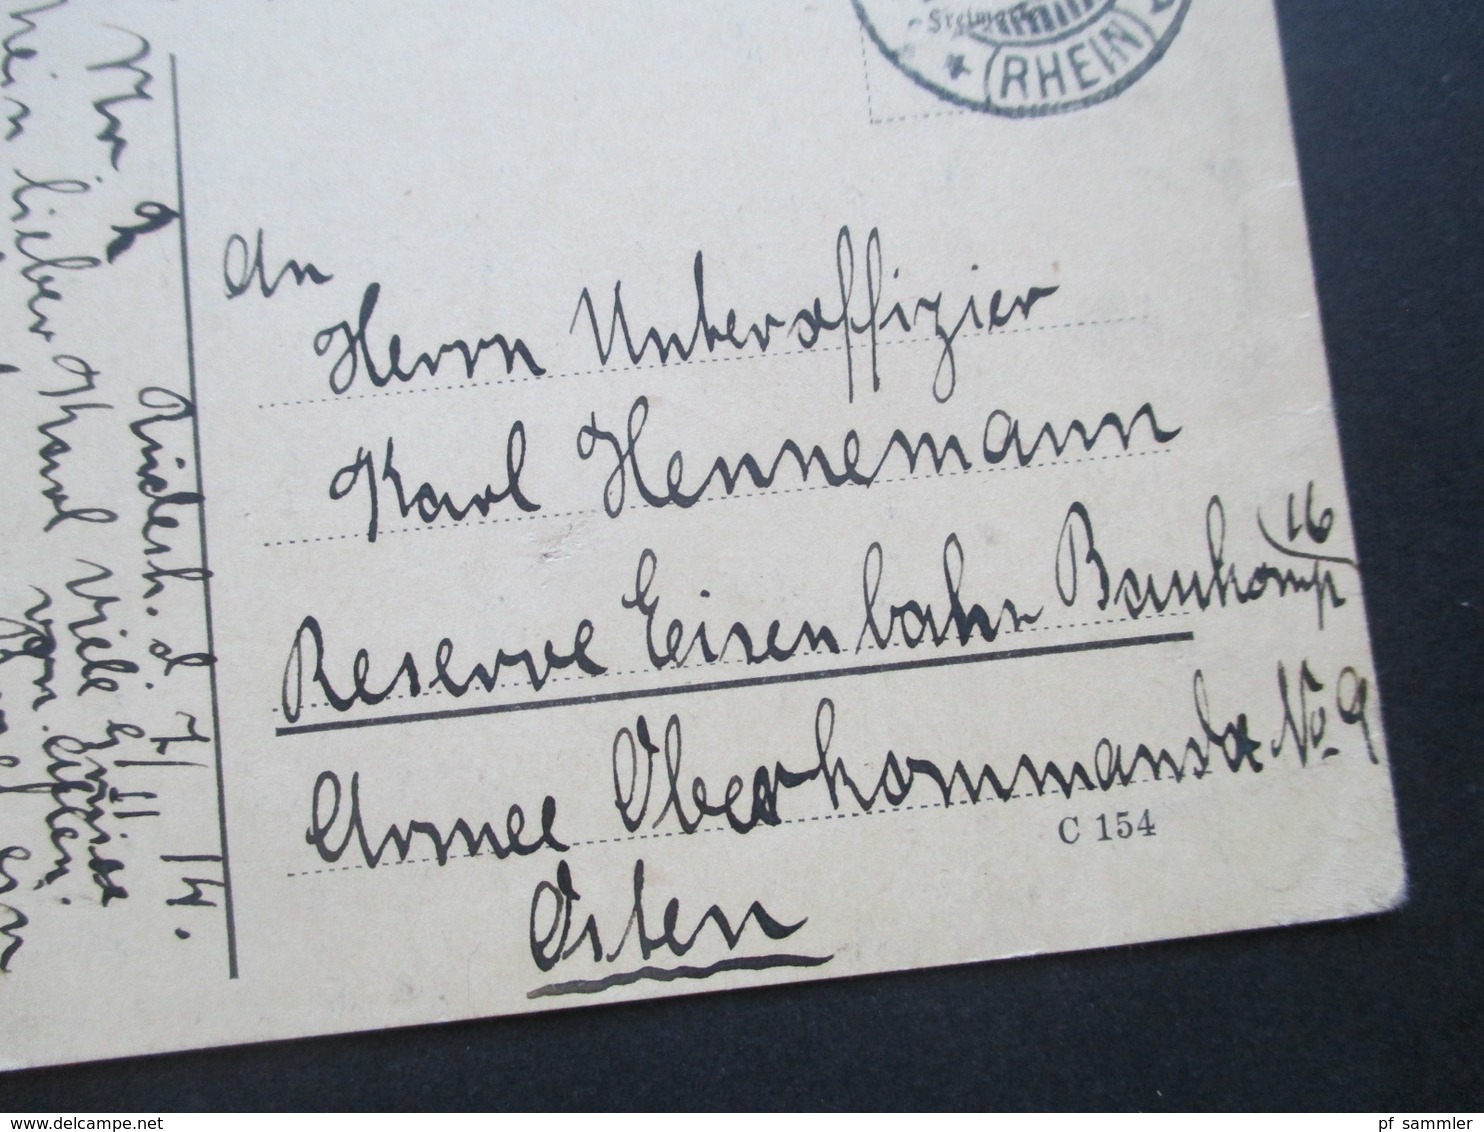 Freimarke
(RHEIN)
An
Herrn Unteroffizier
Karl Hennemann
Reserve Eisenbahn Baukomp 16
Armee Oberkommando No. 9
Osten
C 154
No. 2
Rüdesh. d 7/11 14.
mein lieber Karl viele Grüsse
von
pf_sammler